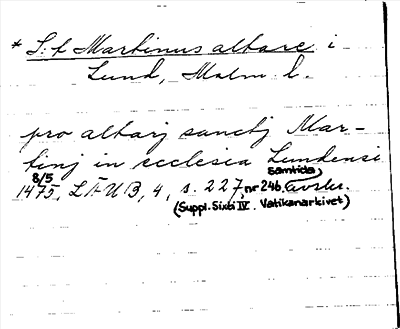 * S:t Martinus altare i
Lund, Malm. l.
pro altarj sanctj Mar-
tinj in ecclesia Lundensi
8/5 1475, LÄUB, 4, s. 227, nr 246. samtida, avskr.
(Suppl. Sixti IV. Vatikanarkivet)